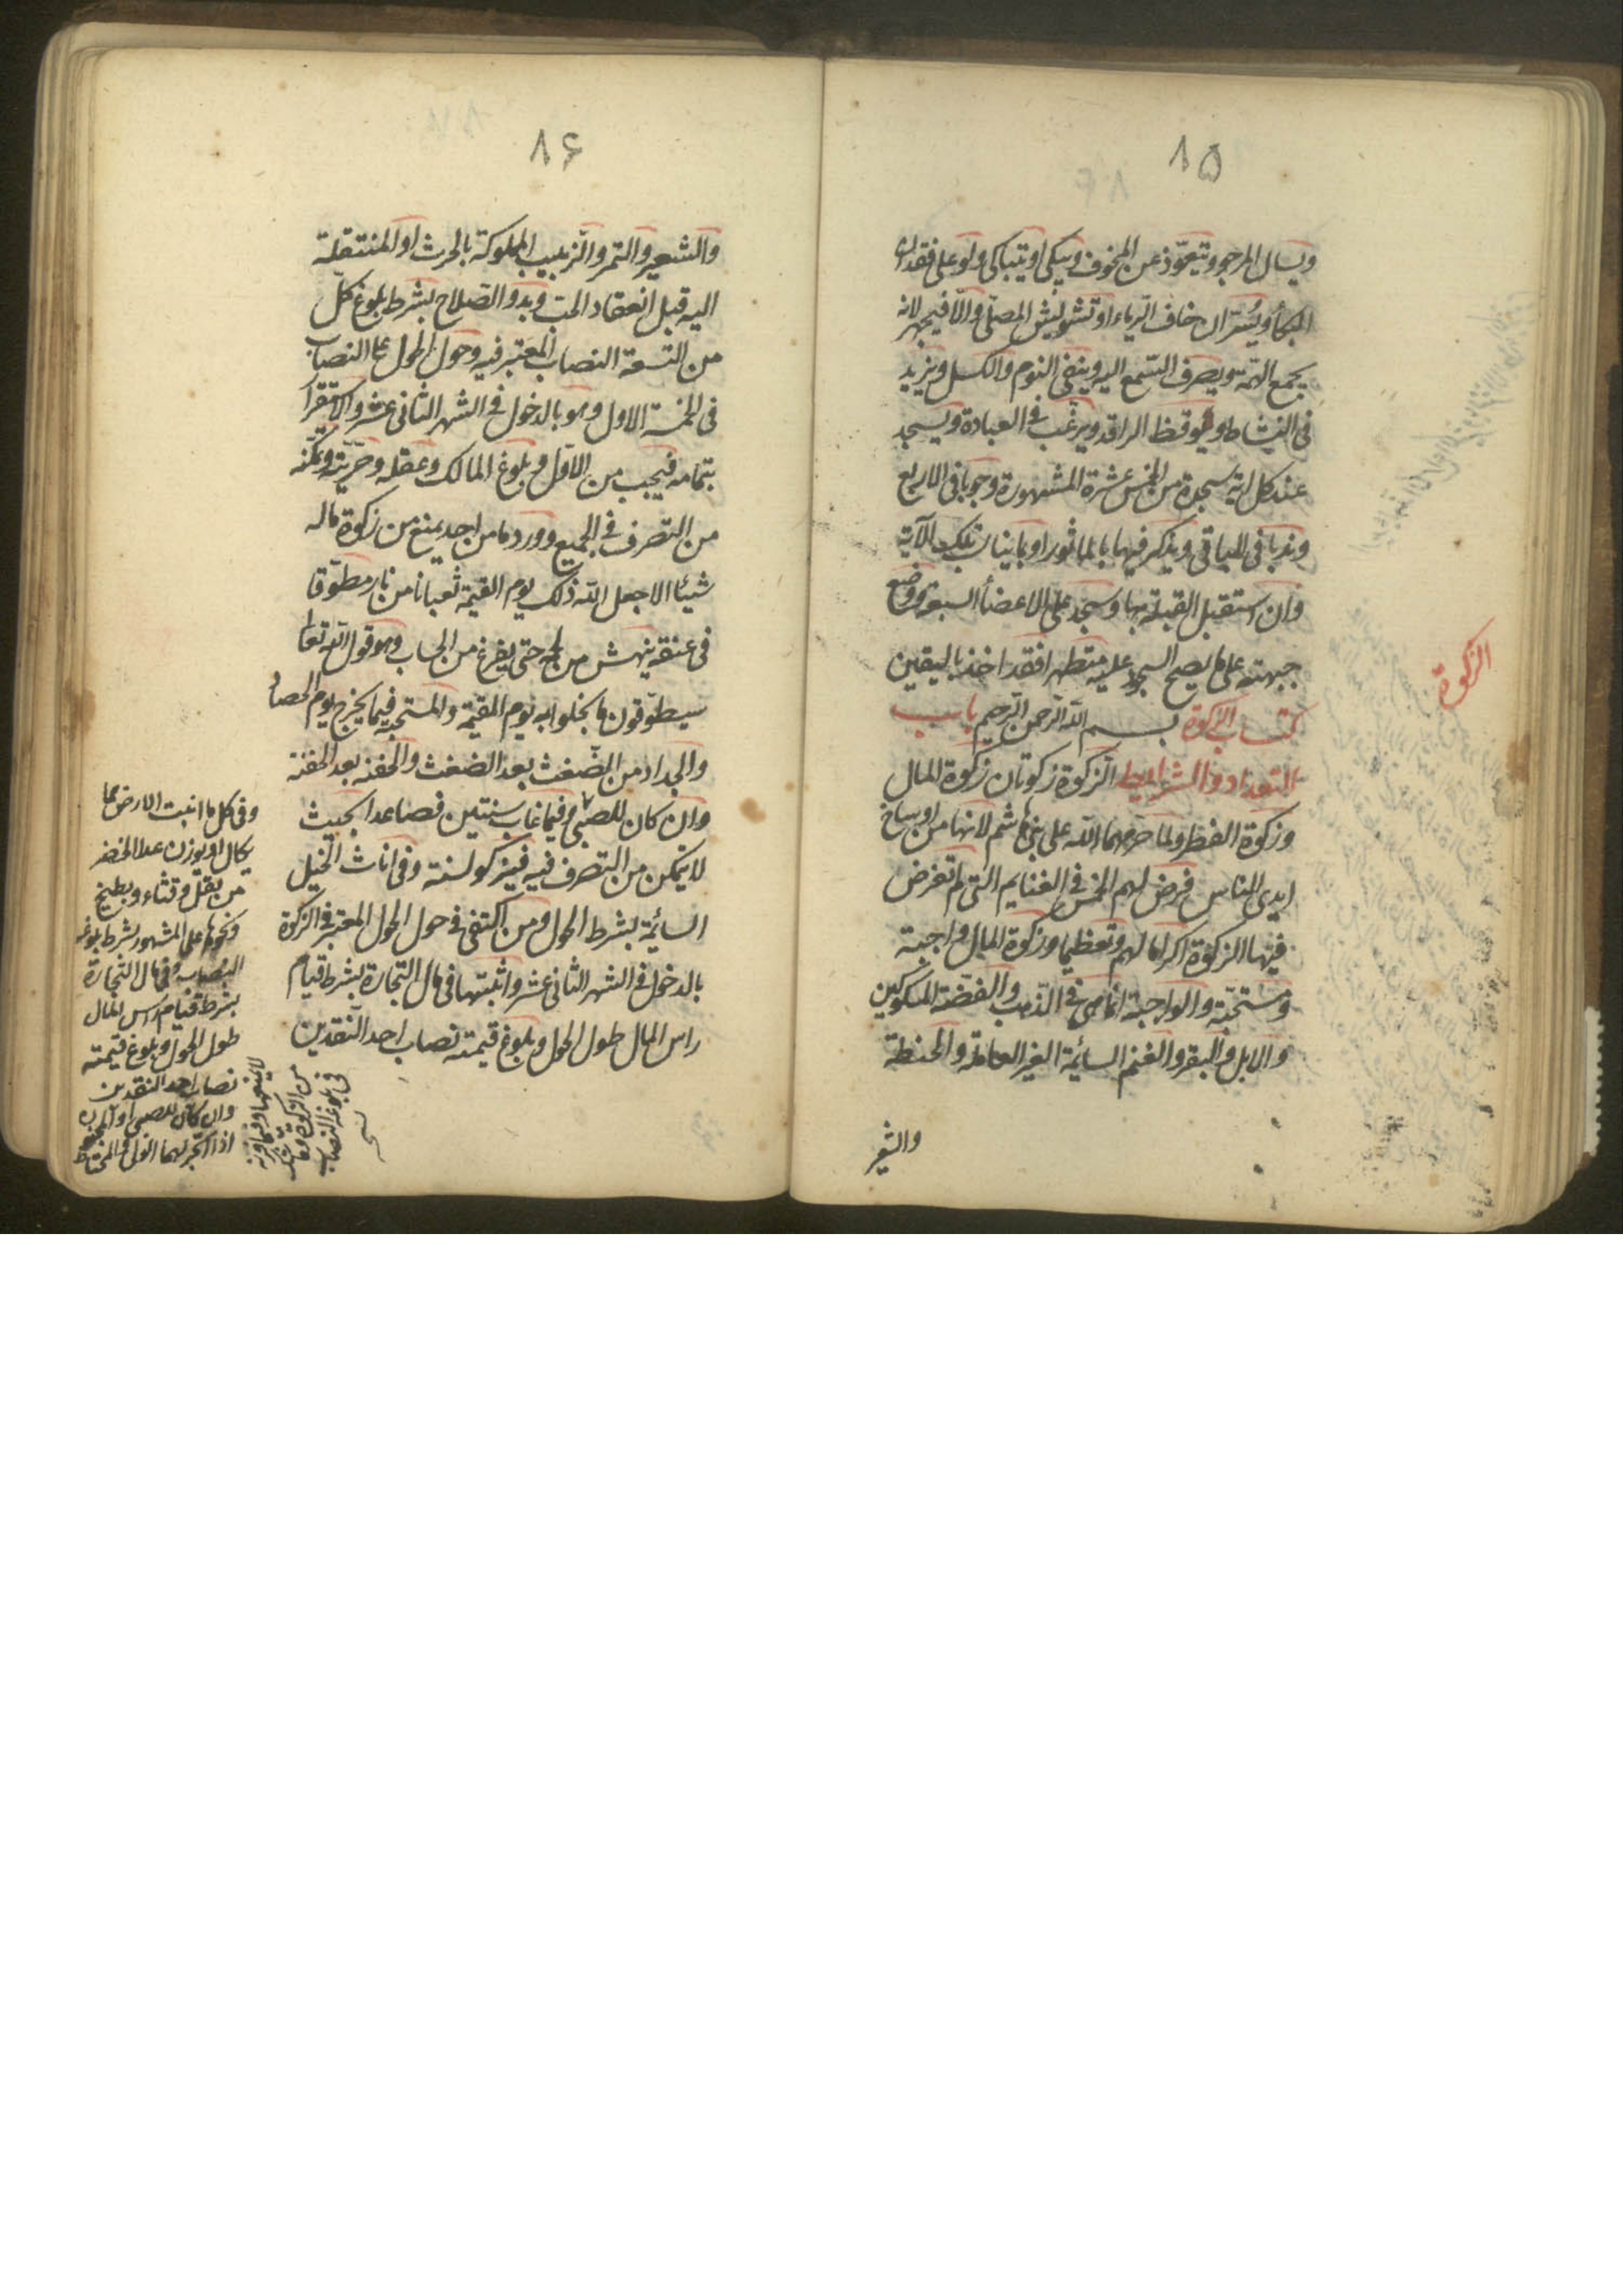 ١٥
ويسال المرجو ويتعوّذ عن المخوف ويبكي او يتباكى ولو على فقدان
البكاء ويُسِرّ ان خاف الرّياء او تشويش المصلّي والّا فيجهر لانه
يجمع الهمّة ويصرف السّمع اليه وينفي النوم والكسل ويزيد
في النشاط ويوقظ الراقد ويرغّب في العبادة ويسجد
عند كل اية سجدة من الخمس عشرة المشهورة وجوبا في الاربع
وندبا في الباقي ويذكر فيها بالماثور او بما يناسب تلك الآية
وان استقبل القبلة بها وسجد على الاعضاء السبعة ووضع
جبهته على ما يصح السجود عليه متطهرا فقد اخذ باليقين
كتاب الزكوة بسم الله الرحمن الرحيم باب
التعداد والشرايط الزكوة زكوتان زكوة المال
وزكوة الفطر ولما حرّمهما الله على بني هاشم لانها من اوساخ
ايدي الناس فرض لهم الخمس في الغنايم التي لم تفرض
فيها الزكوة اكراما لهم وتعظيما وزكوة المال واجبة
ومستحبّة والواجبة انما هي في الذّهب والفضّة المسكوكين
والابل والبقر والغنم السائمة الغير العاملة والحنطة
والشعير
الزكوة
١٦
والشعير والتمر والزبيب المملوكة بالحرث او المنتقلة
اليه قبل انعقاد الحب وبدو الصّلاح بشرط بلوغ كلّ
من التسعة النصاب المعتبر فيه وحول الحول على النصاب
في الخمسة الاول وهو بالدخول في الشهر الثاني عشر والاستقرار
بتمامه فيجب من الاوّل وبلوغ المالك وعقله وحرّيته وتمكّنه
من التصرف في الجميع وورد ما من احد يمنع من زكوة ماله
شيئا الا جعل الله ذلك يوم القيمة ثعبانا من نار مطوّقا
في عنقه ينهش من لحمه حتى يفرغ من الحساب وهو قول الله تعالى
سيطوّقون ما بخلوا به يوم القيمة والمستحبة فيما يخرج يوم الحصاد
والجداد من الضّغث بعد الضغث والحفنة بعد الحفنة
وان كان للصبي وفيما غاب سنتين فصاعدا بحيث
لا يتمكن من التصرف فيه فيزكو لسنة وفي اناث الخيل
السائمة بشرط الحول ومن اكتفى في حول الحول المعتبر في الزكوة
بالدخول في الشهر الثاني عشر واثبتها في مال التجارة بشرط قيام
راس المال طول الحول وبلوغ قيمته نصاب احد النّقدين
وفي كل ما انبت الارض مما
يكال او يوزن عدا الخضر
من بقل وقثاء وبطيخ
ونحوها على المشهور بشرط بلوغه
النصاب وفي مال التجارة
بشرط قيام راس المال
طول الحول وبلوغ قيمته
نصاب احد النقدين
وان كان للصبي او المجنون
اذا اتّجر لهما الولي
من الزكوة
في بلوغه النصاب